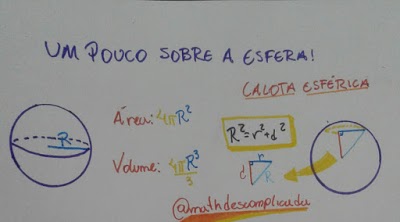 UM POUCO SOBRE A ESFERA!
CALOTA ESFÉRICA
R
Área: 4πR²
R²=r²+d²
Volume: 4πR³/3
r
d
R
@mathdescomplicada